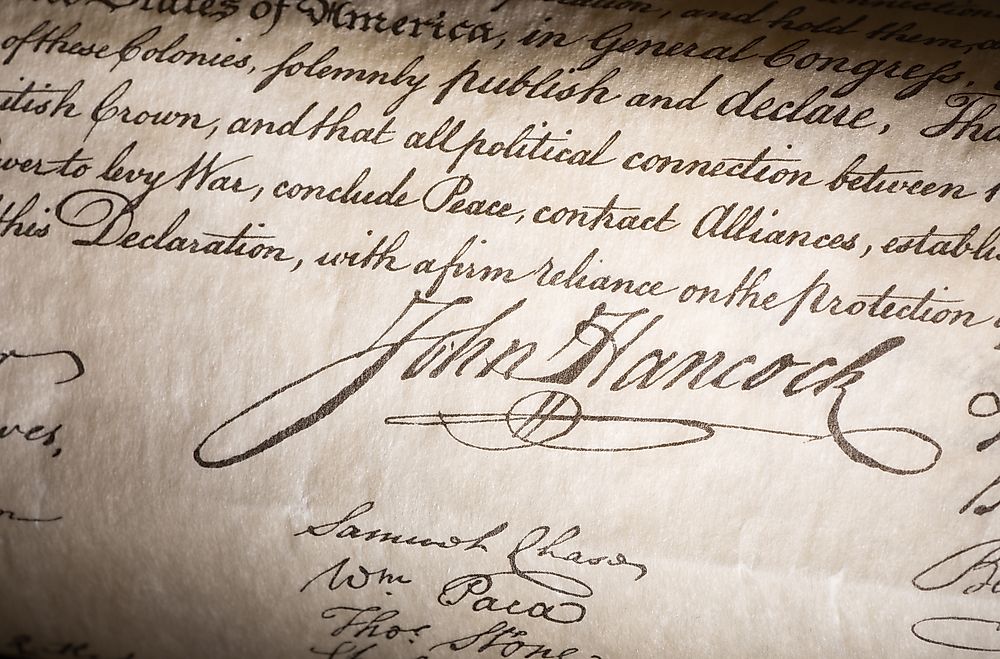 States of America, in General Congress,
and hold them, as
of these Colonies, solemnly publish and declare, Tha
itish Crown, and that all political connection between
wer to levy War, conclude Peace, contract Alliances, establi
this Declaration, with a firm reliance on the protection
John Hancock
ves,
Samuel Chase
Wm Paca
Thos. Stone